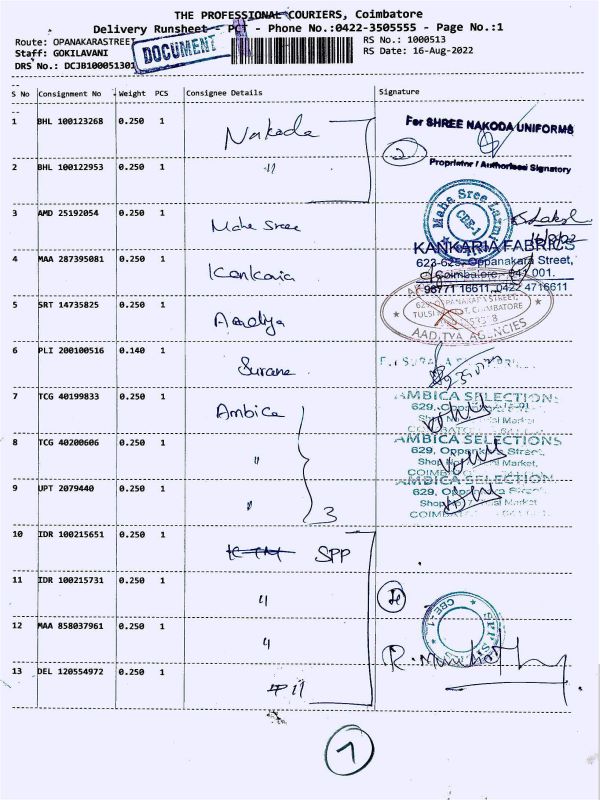 THE PROFESSIONAL COURIERS, Coimbatore
Delivery Runsheet - PCT - Phone No.:0422-3505555 - Page No.:1
Route: OPANAKARASTREET RS No.: 1000513
Staff: GOKILAVANI DOCUMENT RS Date: 16-Aug-2022
DRS No.: DCJB100051301
S No Consignment No Weight PCS Consignee Details Signature
1 BHL 100123268 0.250 1 Nakoda For SHREE NAKODA UNIFORMS
2
Proprietor / Authorised Signatory
2 BHL 100122953 0.250 1 "
3 AMD 25192054 0.250 1 Maha Sree Maha Sree Laxmi CBE-1
4 MAA 287395081 0.250 1 Kankaria KANKARIA FABRICS
623-625, Oppanakara Street,
Coimbatore - 641 001.
96771 16611, 0422 4716611
5 SRT 14735825 0.250 1 Aaditya OPANAKARA STREET,
TULSI MARKET, COIMBATORE
AADITYA AGENCIES
6 PLI 200100516 0.140 1 Surana
7 TCG 40199833 0.250 1 Ambica AMBICA SELECTIONS
629, Oppankara Street,
8 TCG 40200606 0.250 1 " AMBICA SELECTIONS
629, Oppankara Street,
Market,
9 UPT 2079440 0.250 1 " 3 AMBICA SELECTION
629,
Market
10 IDR 100215651 0.250 1 SPP
11 IDR 100215731 0.250 1 " 4
12 MAA 858037961 0.250 1 " CBE-1
13 DEL 120554972 0.250 1 "
7